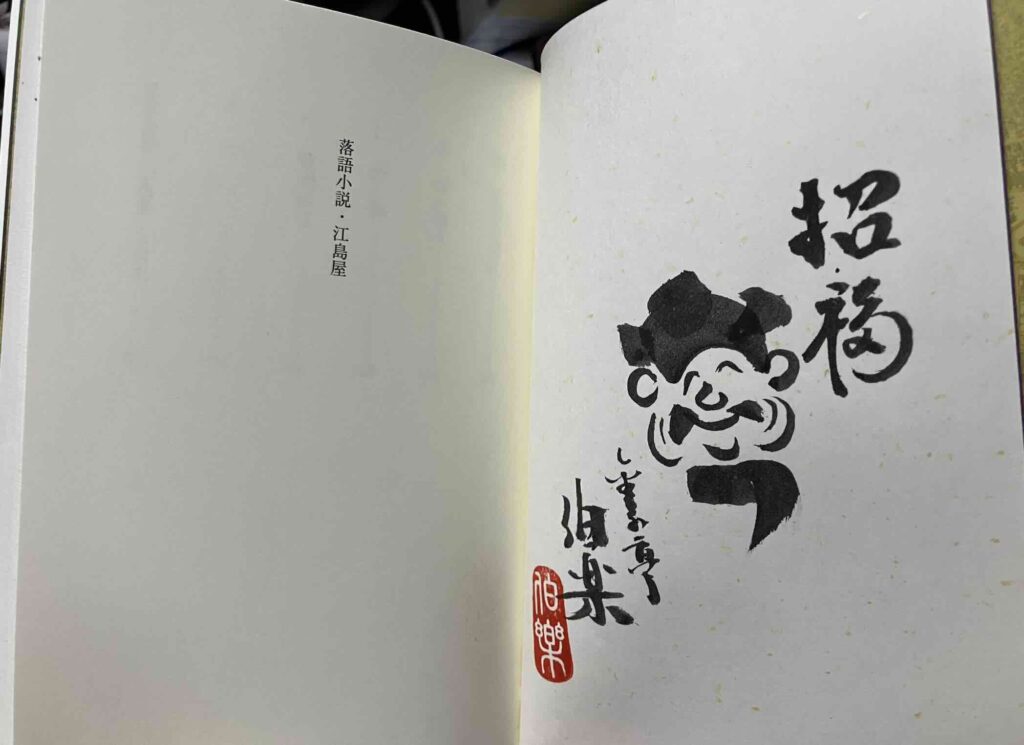 招福
金原亭
伯楽
伯樂
落語小説・江島屋